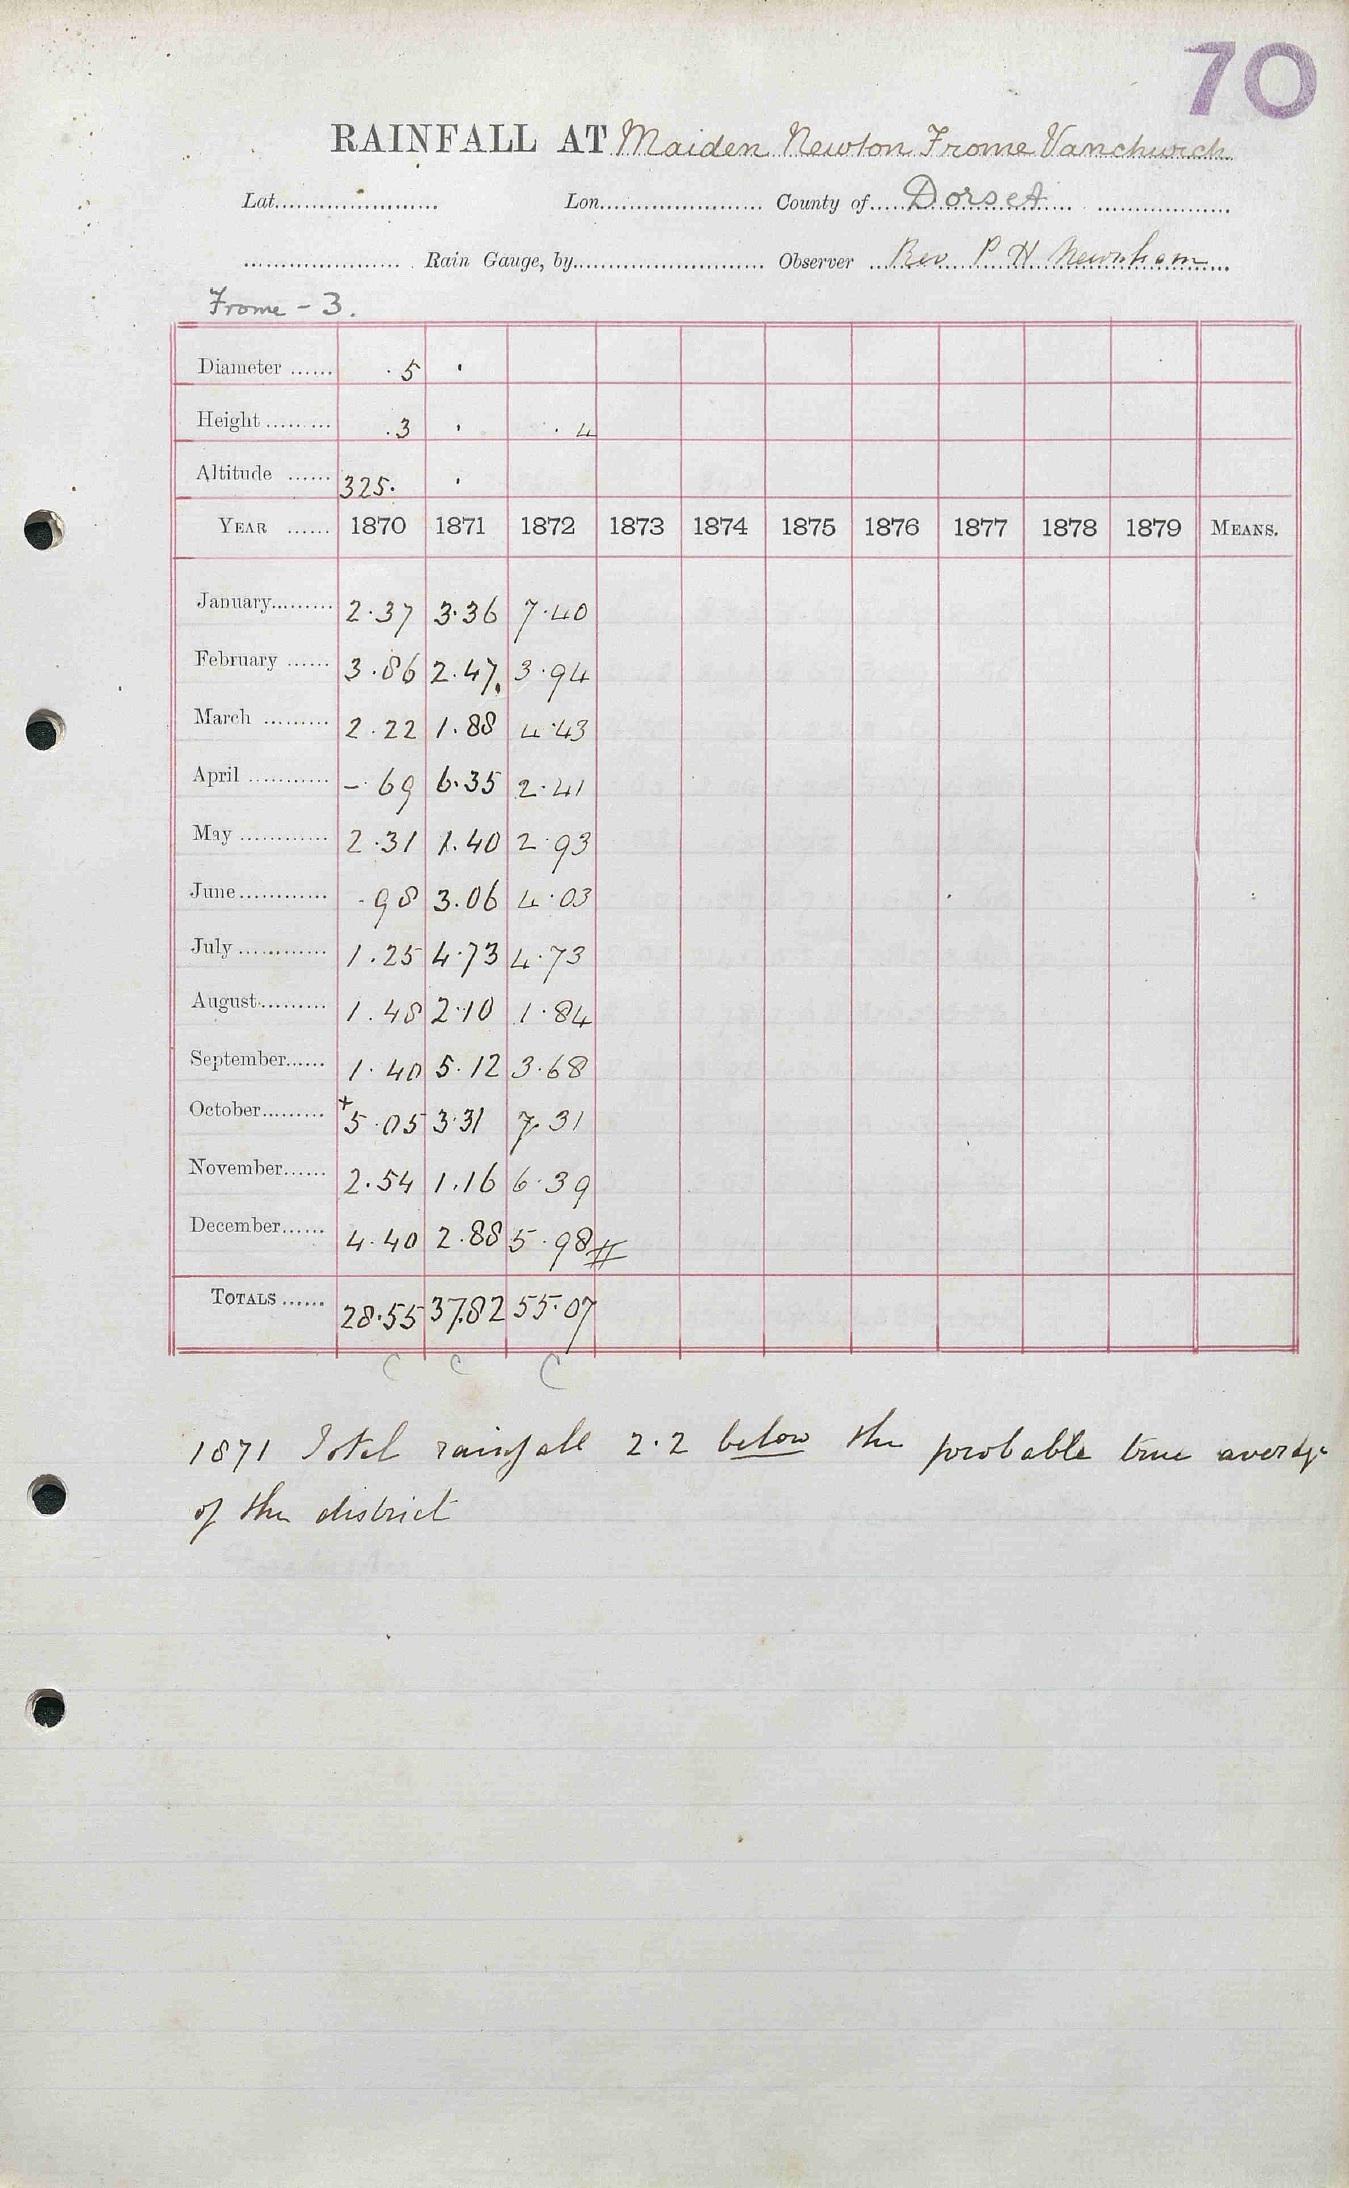 70
RAINFALL AT Maiden Newton Frome Vanchurch
Lat. Lon. County of Dorset
Rain Gauge, by Observer Rev P H Newnham
Frome - 3.
Diameter 5
Height 3 4
Altitude 325
YEAR 1870 1871 1872 1873 1874 1875 1876 1877 1878 1879 MEANS.
January 2.37 3.36 7.40
February 3.86 2.47 3.94
March 2.22 1.88 4.43
April - .69 6.35 2.41
May 2.31 1.40 2.93
June .98 3.06 4.03
July 1.25 4.73 4.73
August 1.48 2.10 1.84
September 1.40 5.12 3.68
October +5.05 3.31 7.31
November 2.54 1.16 6.39
December 4.40 2.88 5.98 #
TOTALS 28.55 37.82 55.07
C C C
1871 Total rainfall 2.2 below the probable true average
of the district